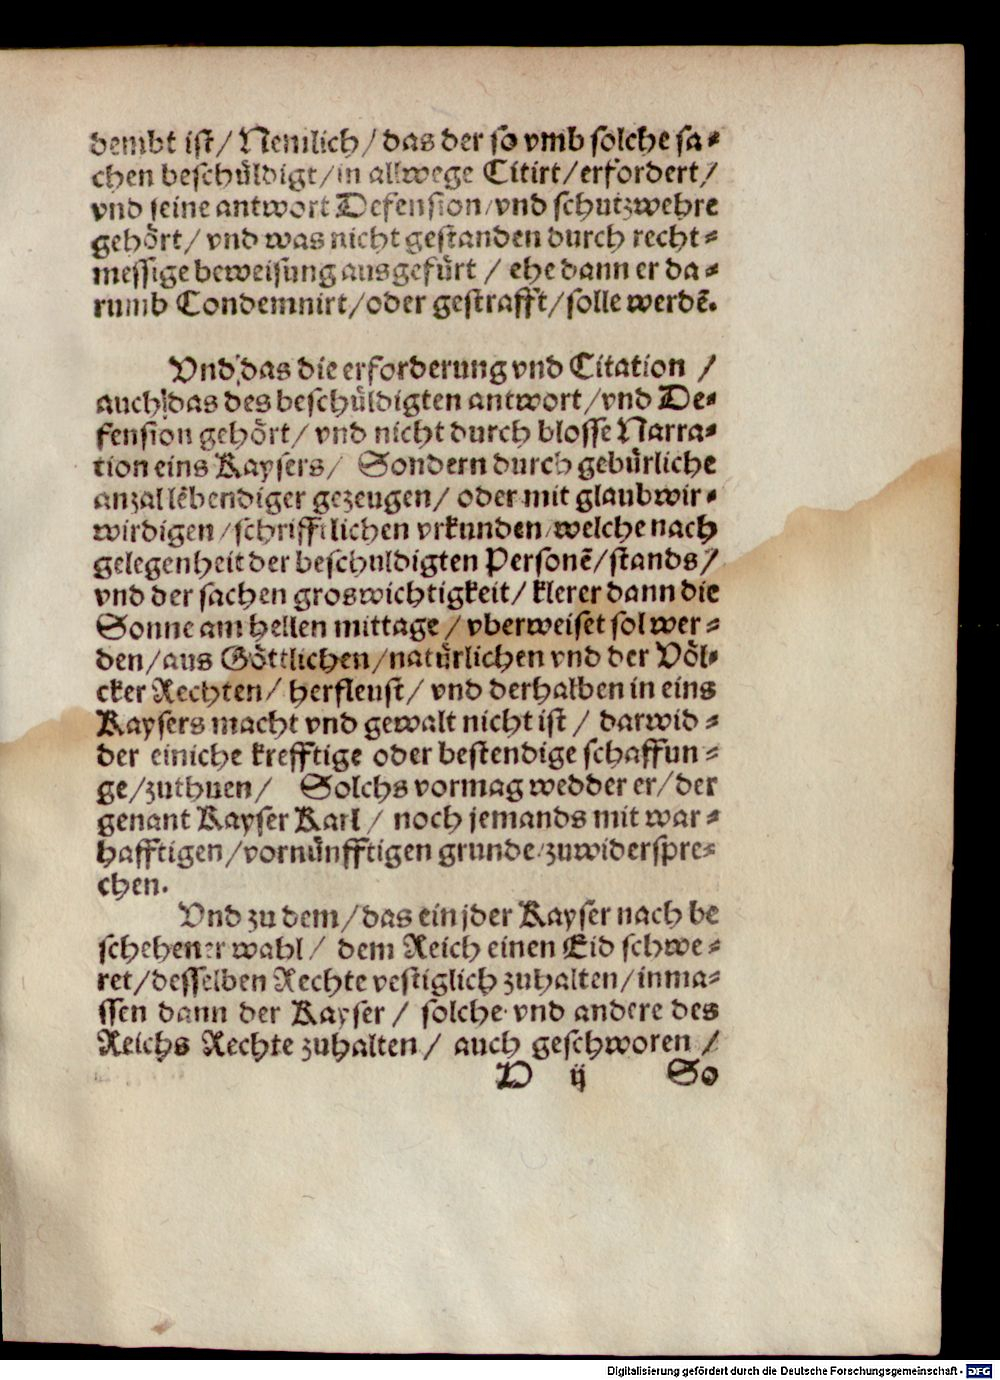 dembt ist/ Nemlich/ das der so vmb solche sa⸗
chen beschüldigt/ in allwege Citirt/ erfordert/
vnd seine antwort Defension/ vnd schutzwehre
gehört/ vnd was nicht gestanden durch recht⸗
messige beweisung ausgefürt / ehe dann er da⸗
rumb Condemnirt/ oder gestrafft/ solle werdẽ.
Vnd das die erforderung vnd Citation /
auch das des beschüldigten antwort/ vnd De⸗
fension gehört/ vnd nicht durch blosse Narra⸗
tion eins Kaysers/ Sondern durch gebürliche
anzal lebendiger gezeugen/ oder mit glaubwir⸗
wirdigen/ schrifftlichen vrkunden/ welche nach
gelegenheit der beschuldigten Personẽ/ stands/
vnd der sachen groswichtigkeit/ klerer dann die
Sonne am hellen mittage / vberweiset sol wer⸗
den/ aus Göttlichen/ natürlichen vnd der Völ⸗
cker Rechten/ herfleust/ vnd derhalben in eins
Kaysers macht vnd gewalt nicht ist / darwid⸗
der einiche krefftige oder bestendige schaffun⸗
ge/ zuthuen/ Solchs vormag wedder er/ der
genant Kayser Karl / noch jemands mit war⸗
hafftigen/ vornünfftigen grunde/ zuwiderspre⸗
chen.
Vnd zu dem/ das ein jder Kayser nach be
schehener wahl/ dem Reich einen Eid schwe⸗
ret/ desselben Rechte vestiglich zuhalten/ inma⸗
ssen dann der Kayser / solche vnd andere des
Reichs Rechte zuhalten/ auch geschworen /
D ij So
Digitalisierung gefördert durch die Deutsche Forschungsgemeinschaft - DFG